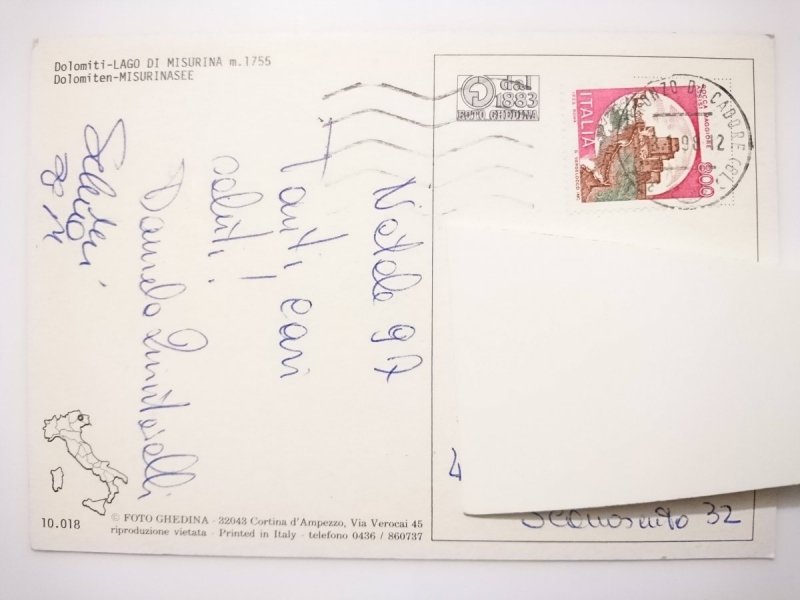 Dolomiti-LAGO DI MISURINA m.1755
Dolomiten-MISURINASEE
dal
1883
FOTO GHEDINA
ITALIA
800
ROCCA MAGGIORE
DI CADORE
Natale 97
Tanti cari
saluti!
Daniela
4
32
10.018
© FOTO GHEDINA - 32043 Cortina d'Ampezzo, Via Verocai 45
riproduzione vietata - Printed in Italy - telefono 0436 / 860737